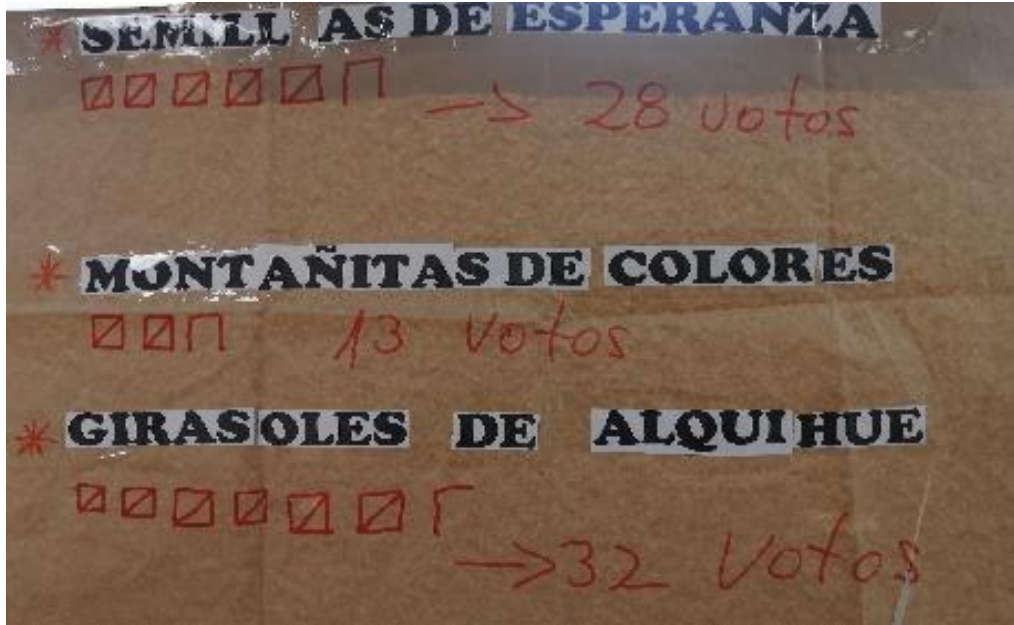 * SEMILLAS DE ESPERANZA
-> 28 votos
* MONTAÑITAS DE COLORES
13 votos
* GIRASOLES DE ALQUIHUE
-> 32 votos